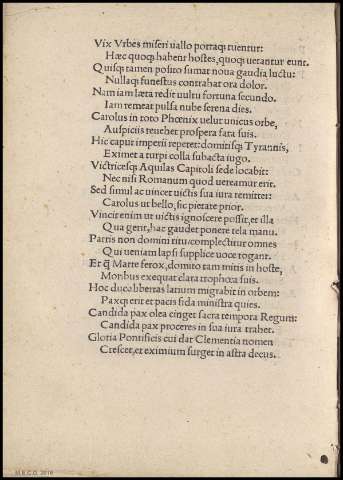 Vix Vrbes miseri uallo portaq; tuentur:
Hæc quoq; habent hostes, quoq; uerantur eunt.
Quisq; tamen posito sumat noua gaudia luctu:
Nullaq; funestus contrahat ora dolor.
Nam iam læta redit uultu fortuna secundo.
Iam remeat pulsa nube serena dies.
Carolus in toto Phœnix uelut unicus orbe,
Auspiciis reuehet prospera fata suis.
Hic caput imperii repetet: domitisq; Tyrannis,
Eximet a turpi colla subacta iugo.
Victricesq; Aquilas Capitoli sede locabit:
Nec nisi Romanum quod uereamur erit.
Sed simul ac uincet uictis sua iura remittet:
Carolus ut bello, sic pietate prior.
Vincir enim ut uictis ignoscere possit, et illa
Qua gerit, hac gaudet ponere tela manu.
Patris non domini titulo complectitur omnes
Qui ueniam lapsi supplice uoce rogant.
Et q̃ Marte ferox, domito tam mitis in hoste,
Moribus exequat clara trophœa suis.
Hoc duce libertas latium migrabit in orbem:
Paxq; erit et pacis fida ministra quies.
Candida pax olea cinget sacra tempora Regum:
Candida pax proceres in sua iura trahet.
Gloria Pontificis cui dat Clementia nomen
Crescet, et eximium surget in astra decus.
M.E.C.D. 2016